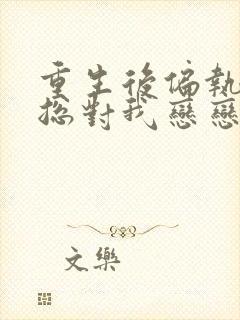 重生後偏執
總對我戀戀
文樂